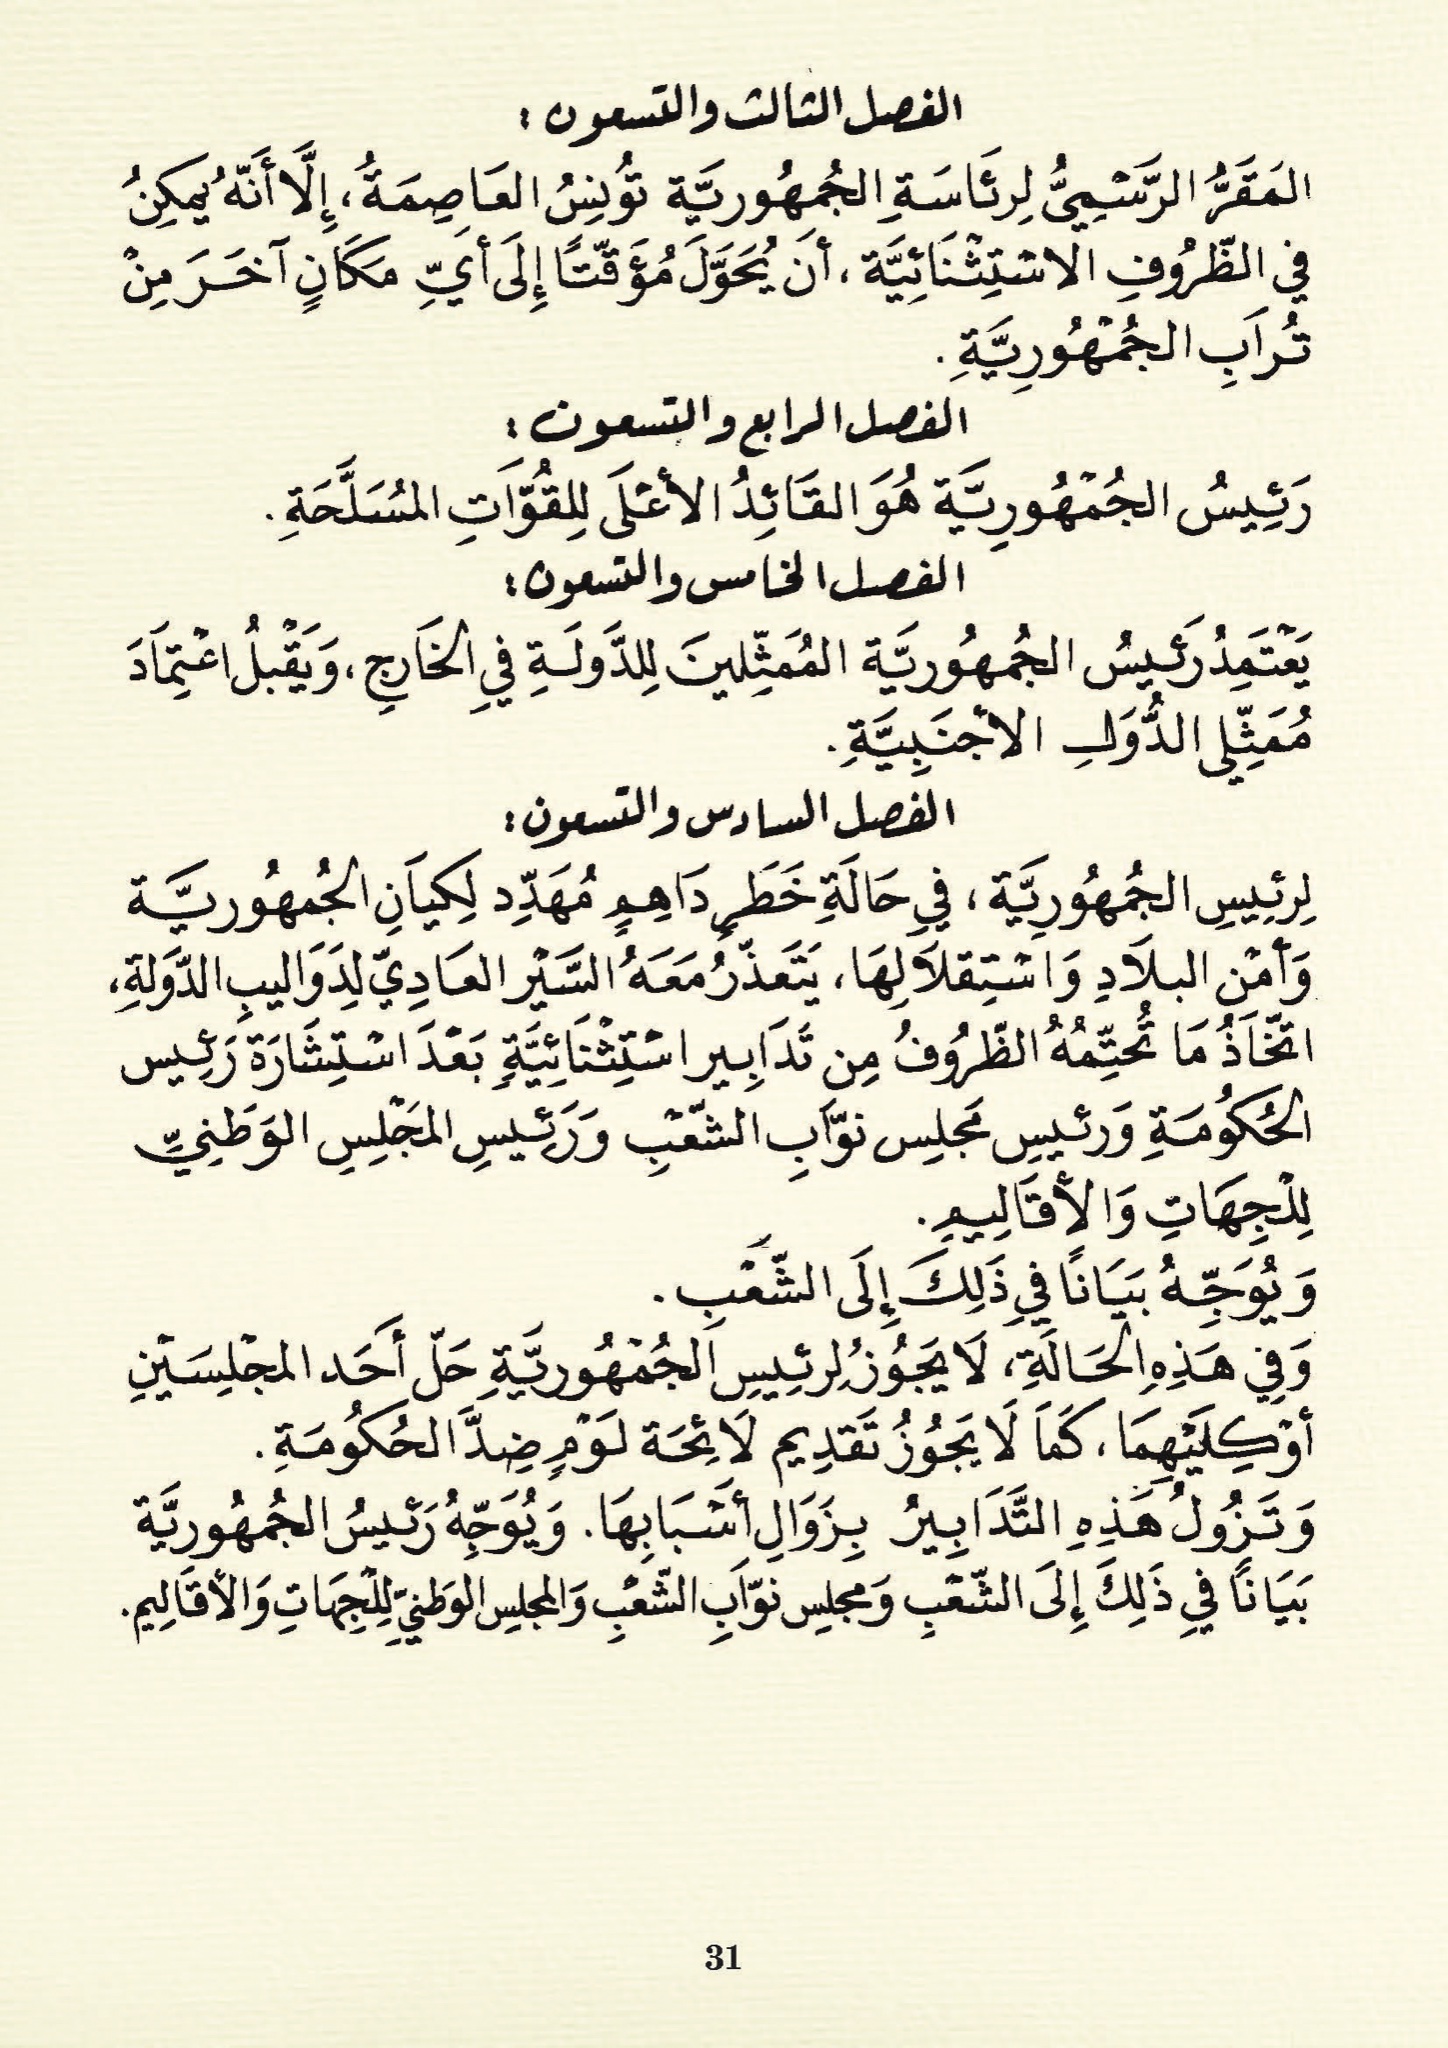 الفصل الثالث والتسعون :
المَقَرُّ الرَّسْمِيُّ لِرِئَاسَةِ الجُمهُوريَّة تُونِسُ العَاصِمَةُ، إِلَّا أَنَّهُ يُمكِنُ
في الظّرُوفِ الاسْتِثْنَائِيَّة، أنَ يُحَوَّلَ مُؤَقّتًا إِلَى أيِّ مَكَانٍ آخَرَ مِنْ
تُرَابِ الجُمْهُورِيَّةِ.
الفصل الرابع والتسعون :
رَئِيسُ الجُمْهُورِيَّة هُوَ القَائِدُ الأعْلَى لِلقُوَّاتِ المُسَلَّحَةِ.
الفصل الخامس والتسعون:
يَعْتَمِدُ رَئيسُ الجُمهُوريَّة المُمَثِّلينَ لِلدَّولَةِ فيِ الخَارجِ، وَيَقْبلُ اعْتِمَادَ
مُمَثِّلي الدُّوَلِ الأجْنَبِيَّةِ.
الفصل السادس والتسعون:
لِرئِيسِ الجُمهُورِيَّة، فيِ حَالَةِ خَطَرٍ دَاهِمٍ مُهَدِّد لِكيَانِ الجُمهُوريَّة
وَأمْن البلَادِ وَاسْتِقلَالِهَا، يَتَعَذّرُ مَعَهُ السَّيْر العَادِيّ لِدَوَاليبِ الدَّوَلةِ،
اتّخَاذُ مَا تُحتِّمُهُ الظّرُوفُ مِن تَدَابِير اسْتِثْنَائِيَّةٍ بَعْدَ اسْتِشَارَة رَئِيس
الحُكُومَةِ وَرئيسِ مَجلِس نوّابِ الشّعْبِ وَرَئِيسِ المَجْلِسِ الوَطَنِيِّ
لِلْجِهَاتِ وَالأقَالِيمِ.
وَيُوَجِّهُ بيَانًا فيِ ذَلِكَ إِلَى الشّعْبِ.
وَفِي هَذِهِ الحَالَةِ، لَا يَجُوزُ لِرئِيسِ الجُمْهُوريَّةِ حَلّ أحَد المجْلِسَيْنِ
أوْ كِلَيْهِمَا، كَمَا لَا يَجُوزُ تَقدِيم لَائِحَة لَوْمٍ ضِدَّ الحُكُومَةِ.
وَتَزُولُ هَذِهِ التَّدَابِيرُ بِزَوَالِ أسْبَابِهَا. وَيُوَجِّهُ رَئيسُ الجُمهُوريَّة
بَيَانًا فيِ ذَلِكَ إِلَى الشّعْبِ وَمجلِس نوّابِ الشّعْبِ وَالمجلِسِ الوَطنيِّ لِلْجِهَاتِ وَالأقَالِيم.
31